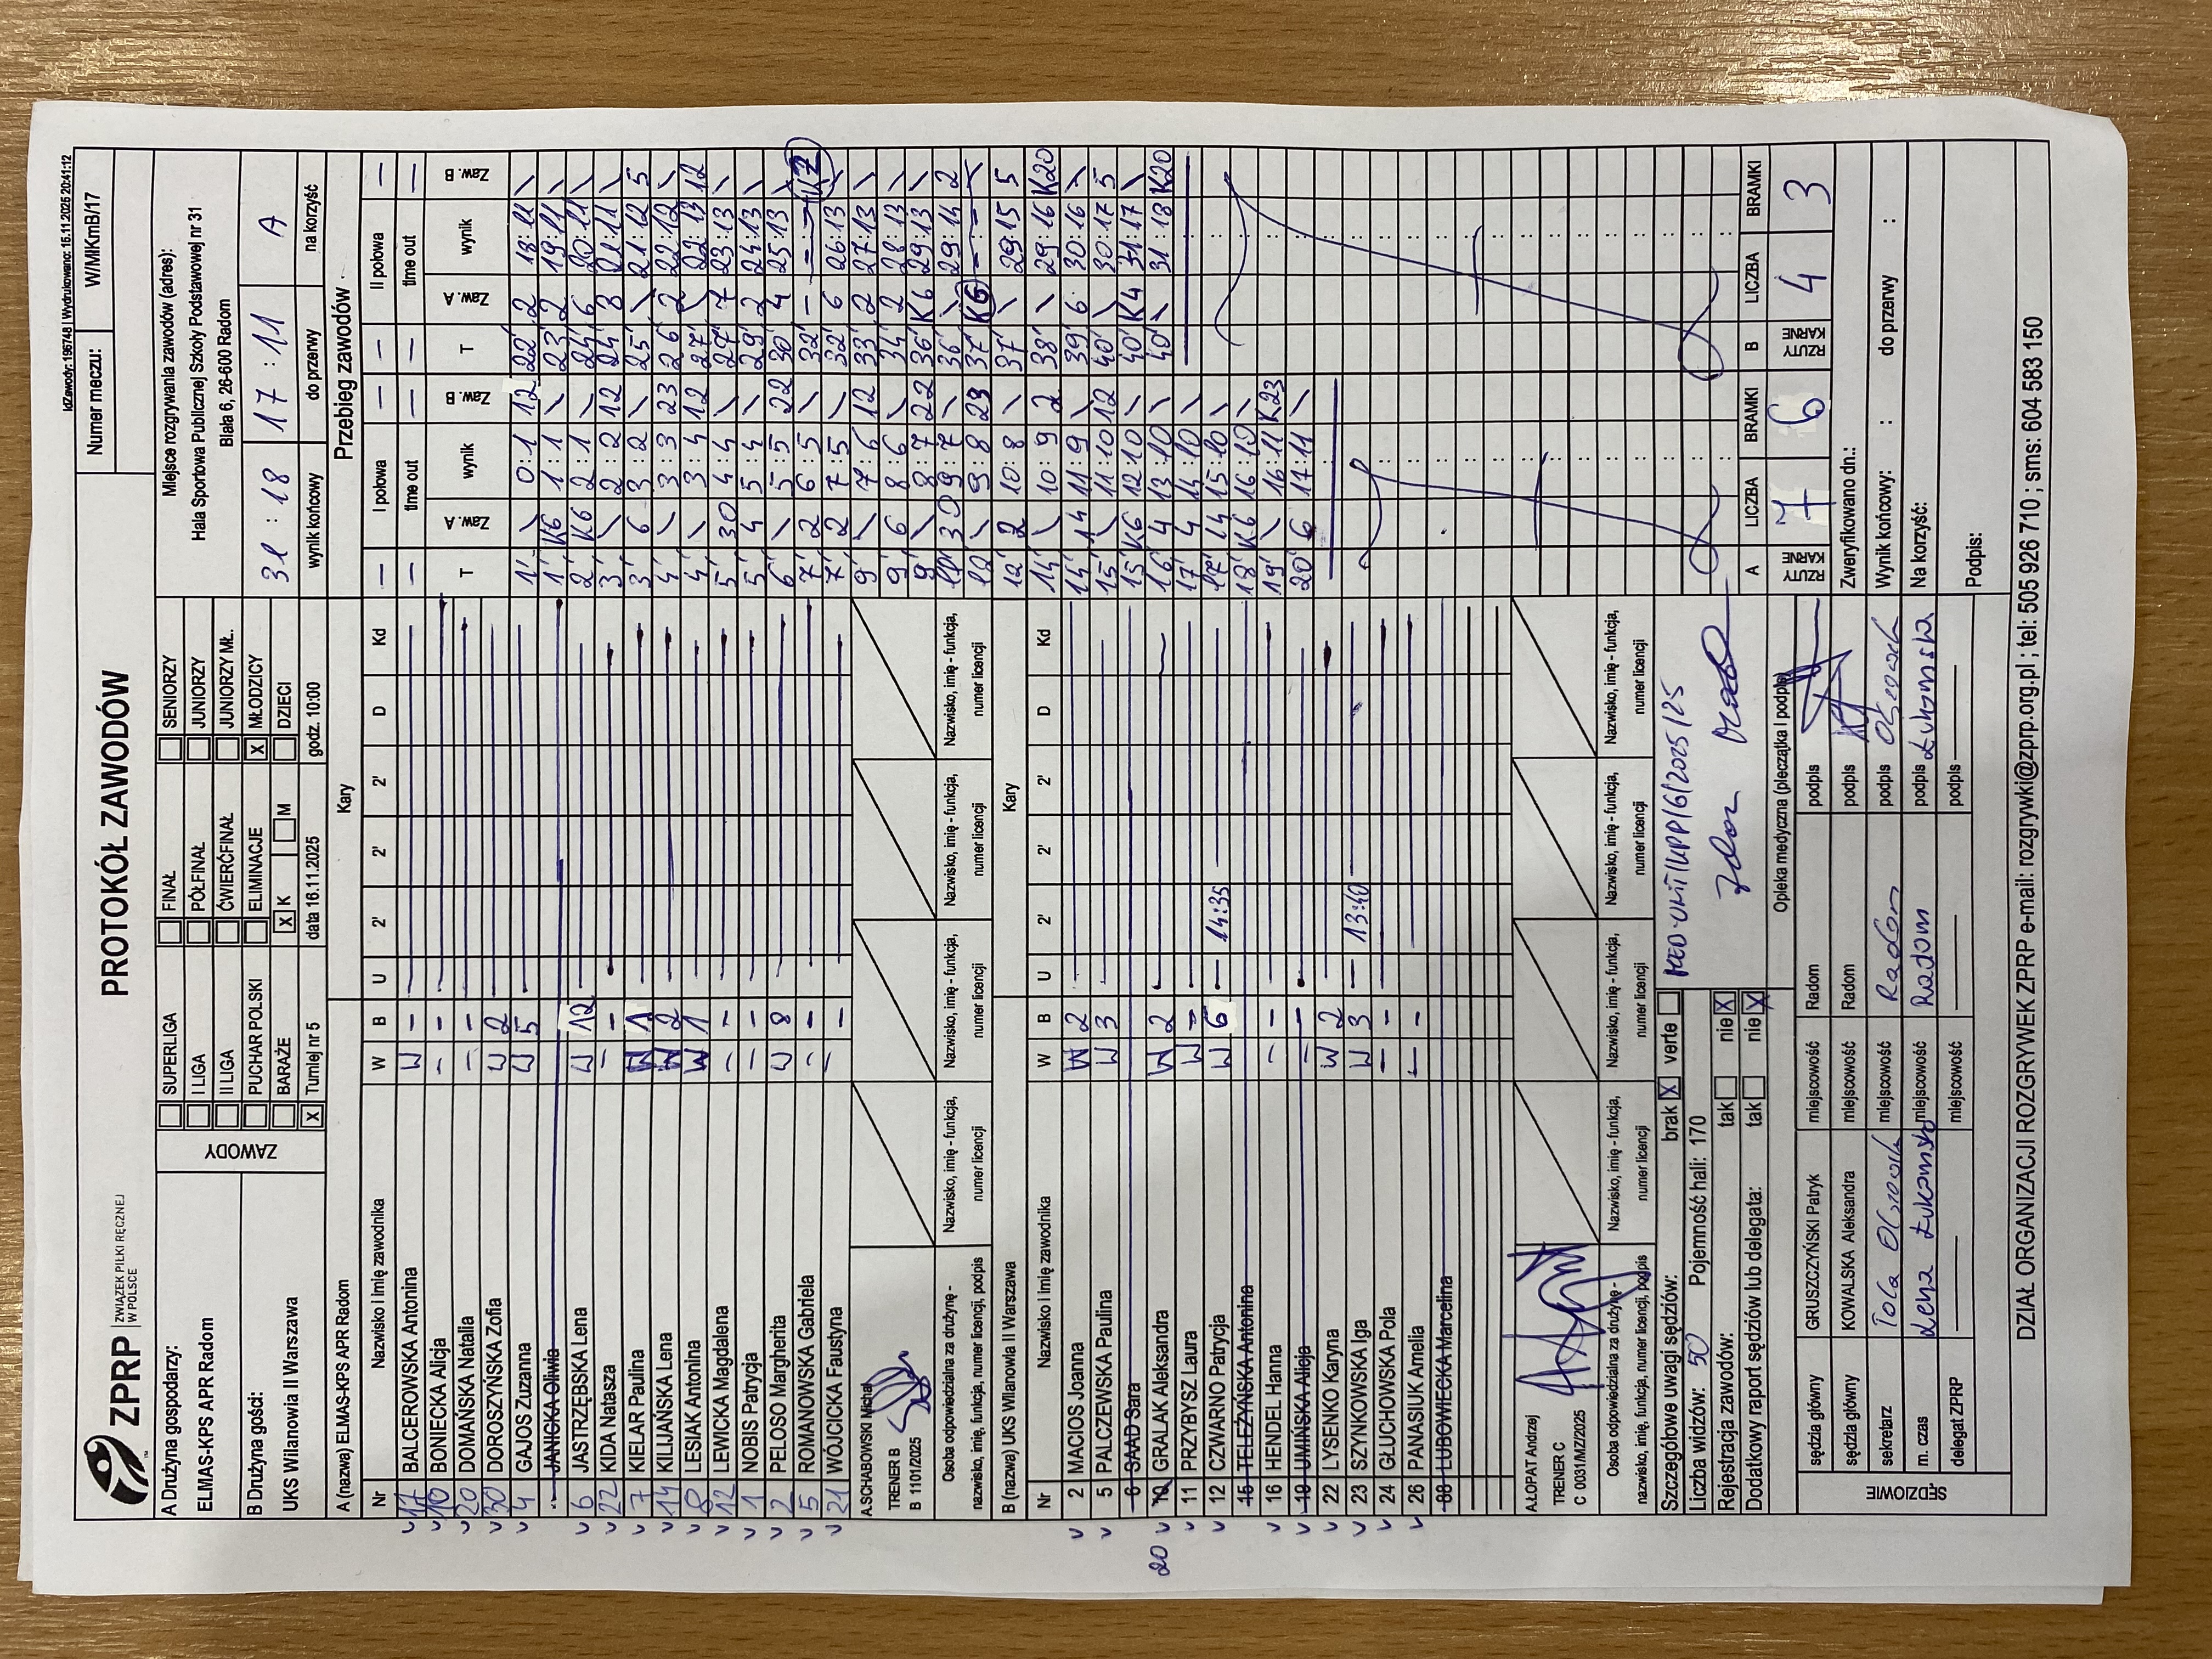 IdZawody: 195748 | Wydrukowano: 15.11.2025 20:41:12
ZPRP
ZWIĄZEK PIŁKI RĘCZNEJ
W POLSCE
PROTOKÓŁ ZAWODÓW
Numer meczu: W/MłKmB/17
A Drużyna gospodarzy:
ELMAS-KPS APR Radom
B Drużyna gości:
UKS Wilanowia II Warszawa
ZAWODY
SUPERLIGA
I LIGA
II LIGA
PUCHAR POLSKI
BARAŻE
X Turniej nr 5
FINAŁ
PÓŁFINAŁ
ĆWIERĆFINAŁ
ELIMINACJE
X K M
data 16.11.2025
SENIORZY
JUNIORZY
JUNIORZY MŁ.
X MŁODZICY
DZIECI
godz. 10:00
Miejsce rozgrywania zawodów (adres):
Hala Sportowa Publicznej Szkoły Podstawowej nr 31
Biała 6, 26-600 Radom
31 : 18 17 : 11 A
wynik końcowy do przerwy na korzyść
A (nazwa) ELMAS-KPS APR Radom Kary
Nr Nazwisko i imię zawodnika W B U 2' 2' 2' D Kd
17 BALCEROWSKA Antonina W -
10 BONIECKA Alicja - -
20 DOMAŃSKA Natalia - -
30 DOROSZYŃSKA Zofia W 2
4 GAJOS Zuzanna W 5
JANICKA Oliwia
6 JASTRZĘBSKA Lena W 12
22 KIDA Natasza - -
7 KIELAR Paulina W 1
14 KILIJAŃSKA Lena W 2
8 LESIAK Antonina W 1
12 LEWICKA Magdalena - -
1 NOBIS Patrycja - -
2 PELOSO Margherita W 8
5 ROMANOWSKA Gabriela - -
21 WÓJCICKA Faustyna - -
A.SCHABOWSKI Michał
TRENER B
B 1101/2025
Osoba odpowiedzialna za drużynę -
nazwisko, imię, funkcja, numer licencji, podpis
Nazwisko, imię - funkcja,
numer licencji
Nazwisko, imię - funkcja,
numer licencji
Nazwisko, imię - funkcja,
numer licencji
Nazwisko, imię - funkcja,
numer licencji
B (nazwa) UKS Wilanowia II Warszawa Kary
Nr Nazwisko i imię zawodnika W B U 2' 2' 2' D Kd
2 MACIOS Joanna W 2
5 PALCZEWSKA Paulina W 3
6 SAAD Sara
20 10 GRALAK Aleksandra W 2
11 PRZYBYSZ Laura W -
12 CZWARNO Patrycja W 6 - 14:35
15 TELEŻYŃSKA Antonina
16 HENDEL Hanna - -
19 UMIŃSKA Alicja - -
22 LYSENKO Karyna W 2
23 SZYNKOWSKA Iga W 3 - 13:40
24 GŁUCHOWSKA Pola - -
26 PANASIUK Amelia - -
88 LUBOWIECKA Marcelina
A.ŁOPAT Andrzej
TRENER C
C 0031/MZ/2025
Osoba odpowiedzialna za drużynę -
nazwisko, imię, funkcja, numer licencji, podpis
Nazwisko, imię - funkcja,
numer licencji
Nazwisko, imię - funkcja,
numer licencji
Nazwisko, imię - funkcja,
numer licencji
Nazwisko, imię - funkcja,
numer licencji
Przebieg zawodów
I połowa II połowa
time out time out
T Zaw. A wynik Zaw. B T Zaw. A wynik Zaw. B
1' \ 0:1 12 22' 2 18:11 \
1' K6 1:1 \ 23' 2 19:11 \
2' K6 2:1 \ 24' 6 20:11 \
3' \ 2:2 12 24' 8 21:11 \
3' 6 3:2 \ 25' \ 21:12 5
4' \ 3:3 23 26' 2 22:12 \
4' \ 3:4 12 27' \ 22:13 12
5' 30 4:4 \ 27' 7 23:13 \
5' 4 5:4 \ 29' 2 24:13 \
6' \ 5:5 22 30' 4 25:13 \
7' 2 6:5 \ 32' - - : - K7
7' 2 7:5 \ 32' 6 26:13 \
9' \ 7:6 12 33' 2 27:13 \
9' 6 8:6 \ 34' 2 28:13 \
9' \ 8:7 22 36' K6 29:13 \
11' 30 9:7 \ 36' \ 29:14 2
12' \ 9:8 23 37' K6 - : - \
12' 2 10:8 \ 37' \ 29:15 5
14' \ 10:9 2 38' \ 29:16 K20
14' 14 11:9 \ 39' 6 30:16 \
15' \ 11:10 12 40' \ 30:17 5
15' K6 12:10 \ 40' K4 31:17 \
16' 4 13:10 \ 40' \ 31:18 K20
17' 4 14:10 \
17' 14 15:10 \
18' K6 16:10 \
19' \ 16:11 K23
20' 6 17:11 \
A LICZBA BRAMKI B LICZBA BRAMKI
RZUTY KARNE 7 6 RZUTY KARNE 4 3
Szczegółowe uwagi sędziów: brak X verte
Liczba widzów: 50 Pojemność hali: 170
Rejestracja zawodów: tak nie X
Dodatkowy raport sędziów lub delegata: tak nie X
Opieka medyczna (pieczątka i podpis)
SĘDZIOWIE
sędzia główny GRUSZCZYŃSKI Patryk miejscowość Radom podpis
sędzia główny KOWALSKA Aleksandra miejscowość Radom podpis
sekretarz Tola miejscowość Radom podpis
m. czas Lena Łukomska miejscowość Radom podpis Łukomska
delegat ZPRP miejscowość podpis
Zweryfikowano dn.:
Wynik końcowy: : do przerwy :
Na korzyść:
Podpis:
DZIAŁ ORGANIZACJI ROZGRYWEK ZPRP e-mail: rozgrywki@zprp.org.pl ; tel: 505 926 710 ; sms: 604 583 150